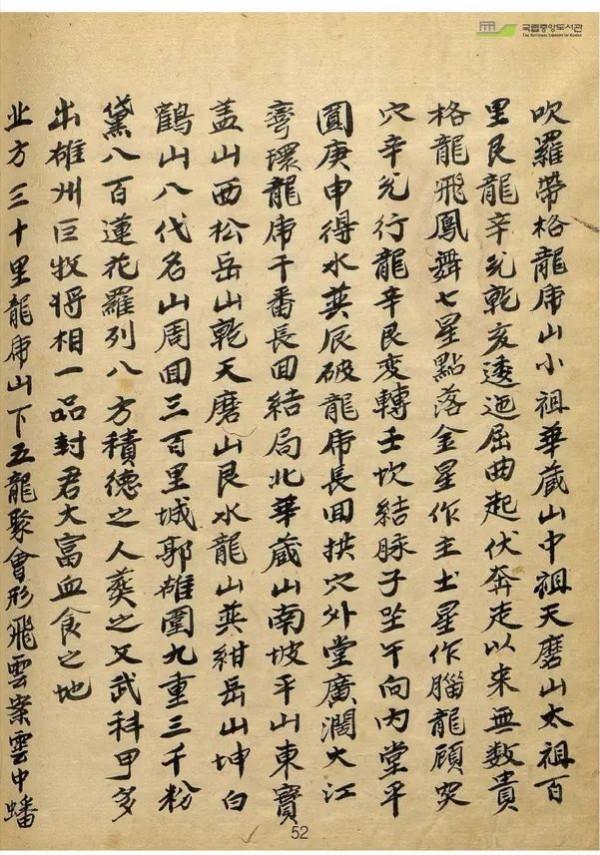 국립중앙도서관
The National Library of Korea
吹羅帶格龍席山小祖華蔵山中祖天磨山太祖百
里艮龍辛兌乾亥透迤屈曲起伏奔走以来無数貴
格龍飛鳳舞七星點落金星作主土星作腦龍顧突
穴辛兌行龍辛艮变轉壬坎結脉子坐午向内堂平
圓庚申得水巽辰破龍席長回拱穴外堂廣濶大江
弯環龍席千番長回結局北華蔵山南坡平山東寶
盖山西松岳山乾天磨山艮水龍山巽紺岳山坤白
鶴山八代名山周回三百里城郭雄圍九重三千粉
黛八百蓮花羅列八方積德之人葬之文武科甲多
出雄州巨牧将相一品封君大富血食之地
北方三十里龍席山下五龍聚會形飛雲案雲中蟠
52